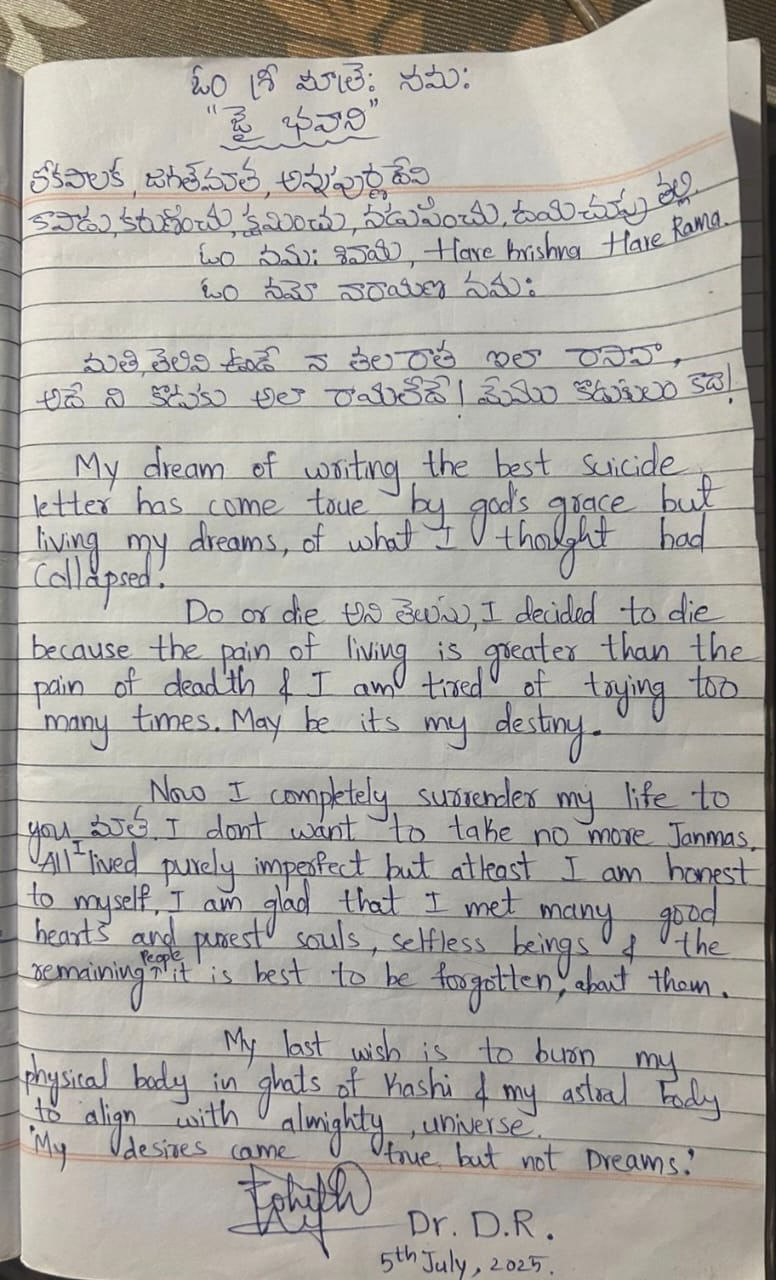 ఓం శ్రీ మాత్రే నమః
"జై భవాని"
జగత్‌మాత, అన్నపూర్ణ దేవి
కాపాడు, కరుణించు, క్షమించు, నడుపించు, తల్లి
ఓం నమః శివాయ, Hare krishna Hare Rama.
ఓం నమో నారాయణ నమః
మతి, తెలివి ఉండే నా తల రాత ఇలా రాసావా,
అదే ని కొడుకు అలా రాయలేదే! మేము కొడుకులం కదా!
My dream of writing the best suicide
letter has come true by god's grace but
living my dreams, of what I thought had
Collapsed.
Do or die అని తెలుసు, I decided to die
because the pain of living is greater than the
pain of deadth & I am tired of trying too
many times. May be its my destiny.
Now I completely surrender my life to
you మాత. I dont want to take no more Janmas.
All I lived purely imperfect but atleast I am honest
to myself. I am glad that I met many good
hearts and purest souls, selfless beings & the
remaining people it is best to be forgotten, about them.
My last wish is to burn my
physical body in ghats of Kashi & my astral body
to align with almighty, universe.
"My desires came true but not Dreams."
Dr. D.R.
5th July, 2025.